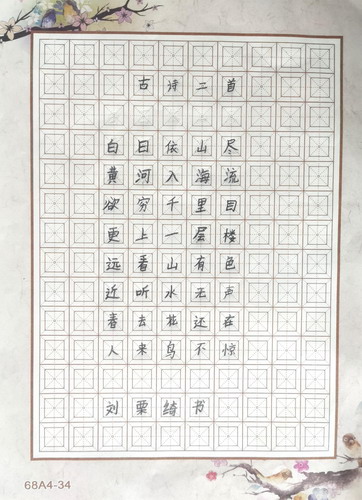 古诗二首
白日依山尽
黄河入海流
欲穷千里目
更上一层楼
远看山有色
近听水无声
春去花还在
人来鸟不惊
刘栗绮书
68A4-34